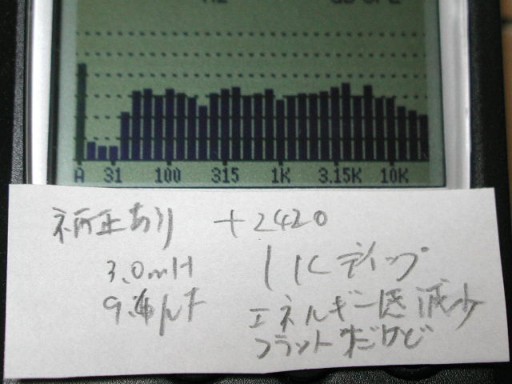 A 31 100 315 1K 3.15K 10K
補正あり +2420
3.0mH 1Kディップ
9.4μF エネルギー感減少
フラットだけど